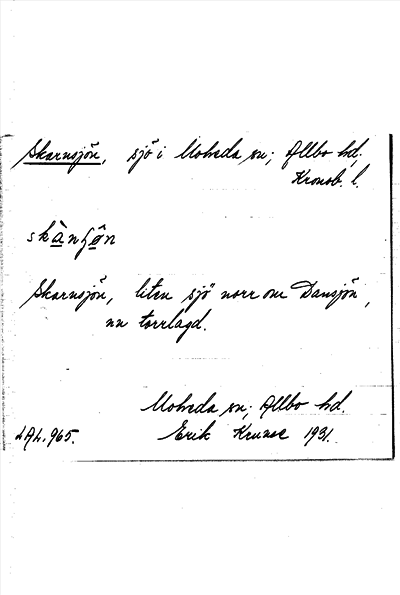 Skarnsjön, sjö i Moheda sn; Allbo hd.
Kronob. l.
skànʃön
Skarnsjön, liten sjö norr om Dansjön,
nu torrlagd.
Moheda sn; Allbo hd.
LAL. 965. Erik 1931.